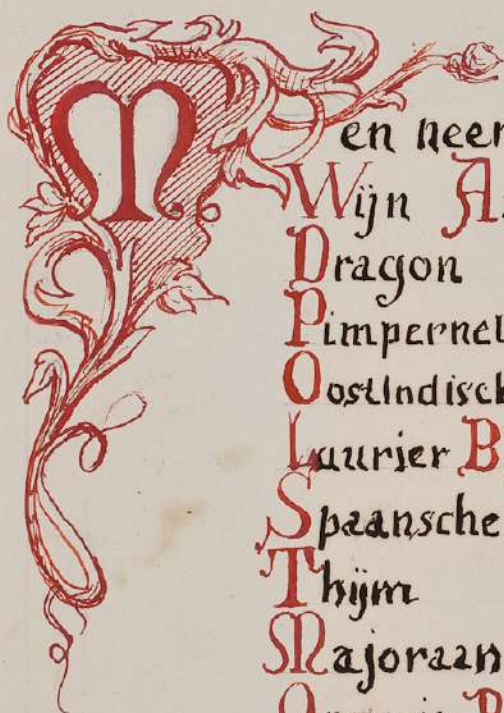 M en neem
Wijn A
Dragon
Pimpernel
OostIndisch
Laurier B
Spaansche
Thijm
Majoraan